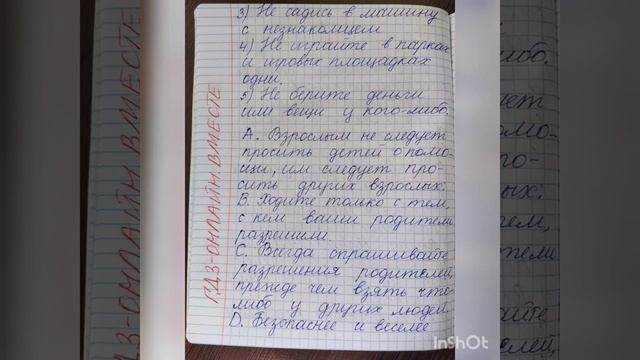 3) Не садись в машину
с незнакомцем
4) Не играйте в парках
и игровых площадках
одни.
5) Не берите деньги
или вещи у кого-либо.
А. Взрослым не следует
просить детей о помо-
щи, им следует про-
сить других взрослых.
В. Ходите только с тем,
с кем ваши родители
разрешили.
С. Всегда спрашивайте
разрешения родителей,
прежде чем взять что-
либо у других людей.
D. Безопаснее и веселее
ГДЗ-ОНЛАЙН ВМЕСТЕ
InShOt